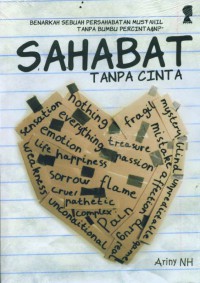 BENARKAH SEBUAH PERSAHABATAN MUSTAHIL
TANPA BUMBU PERCINTAAN?
SAHABAT
TANPA CINTA
nothing
fragile
sensation
everything
mystery
emotion
treasure
mistake
life happiness
passion
affection
weakness
sorrow
flame
cruel
pathetic
complex
Pain
unconditional
Ariny NH